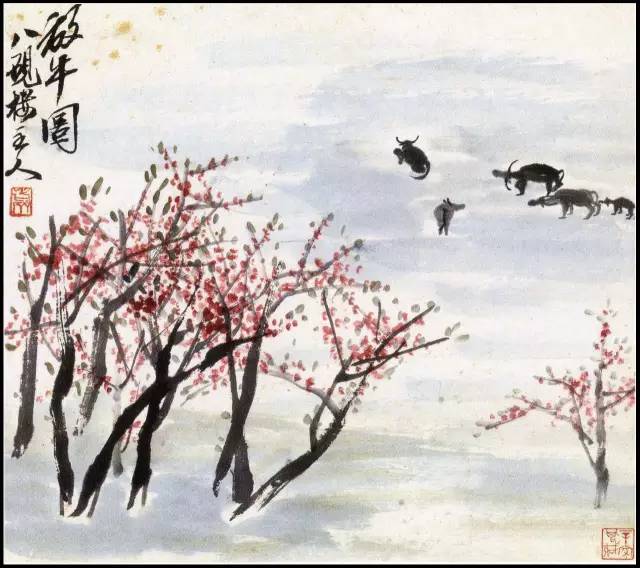 放牛圖
八硯樓主人